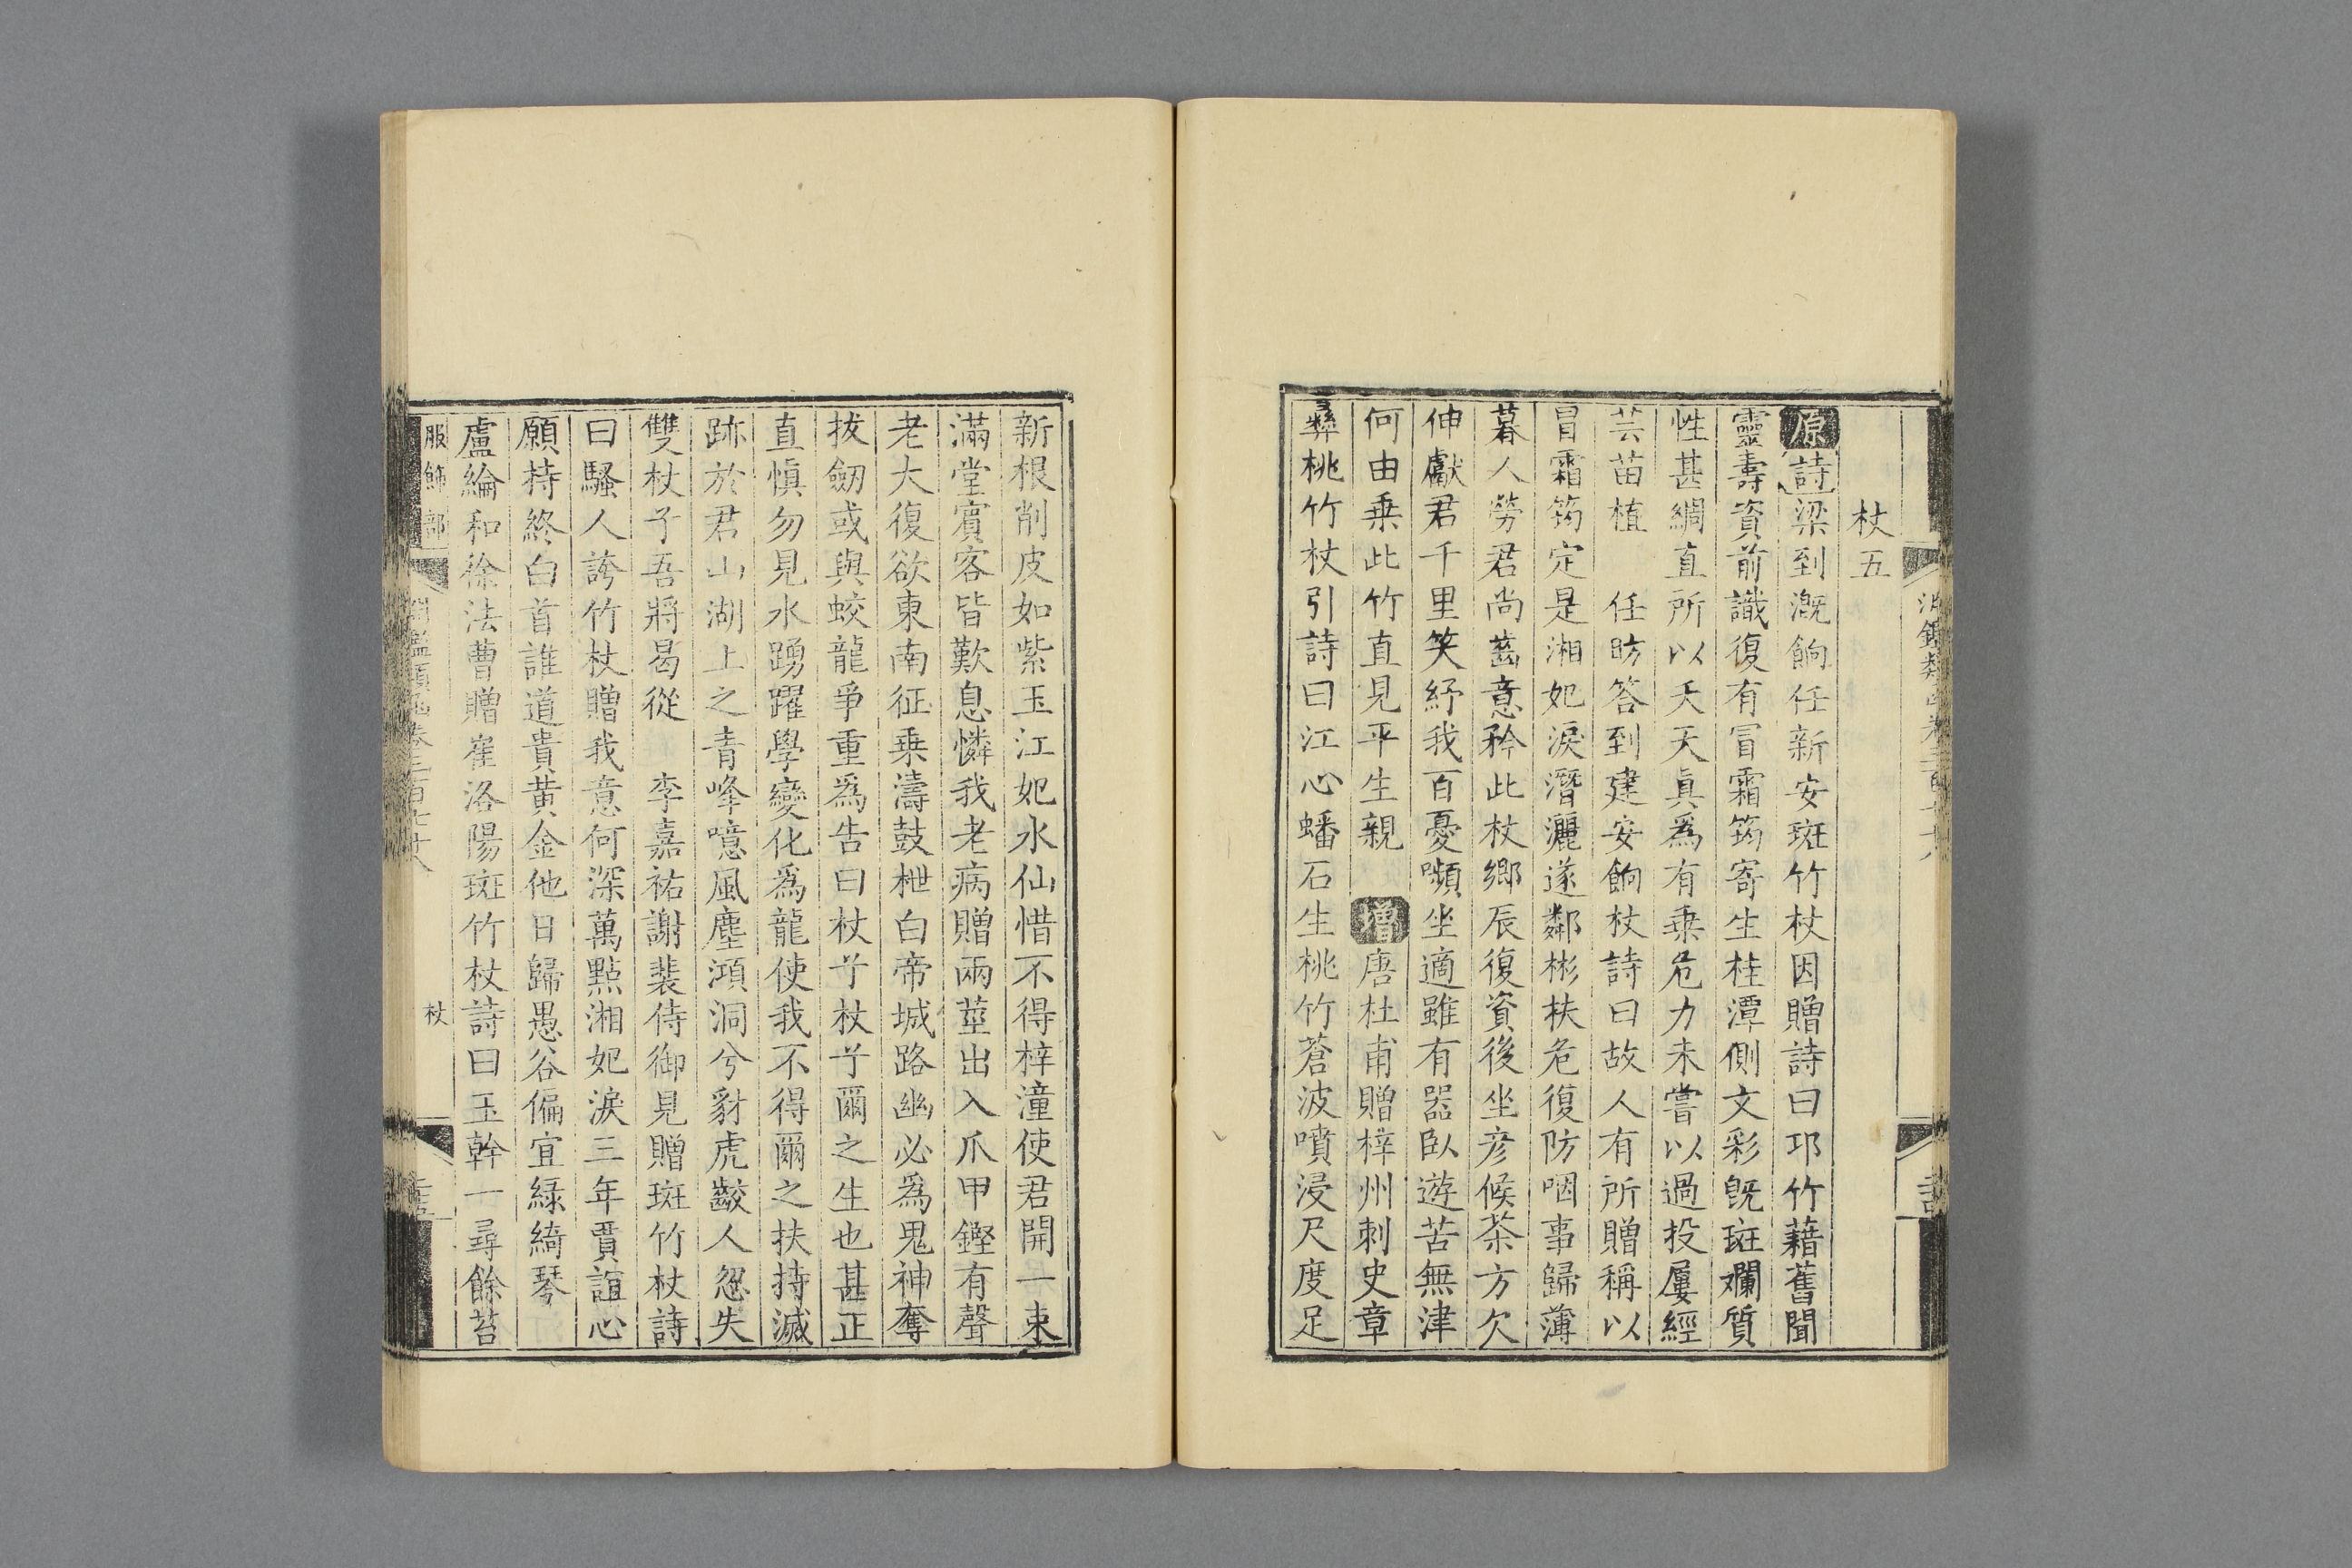 杖五
原詩梁到溉餉任新安斑竹杖因贈詩曰邛竹藉舊聞
靈壽資前識復有冒霜筠寄生桂潭側文彩旣斑斕質
性甚綢直所以夭天眞爲有乗危力未嘗以過投屢經
芸苗植 任昉答到建安餉杖詩曰故人有所贈稱以
冒霜筠定是湘妃淚潛灑遂鄰彬扶危復防咽事歸薄
暮人勞君尚齒意矜此杖鄉辰復資後坐彦候茶方欠
伸獻君千里笑紓我百憂嚬坐適雖有噐臥遊苦無津
何由乗此竹直見平生親 增唐杜甫贈梓州刺史章
彝桃竹杖引詩曰江心蟠石生桃竹蒼波噴浸尺度足
新根削皮如紫玉江妃水仙惜不得梓潼使君開一束
滿堂賓客皆歎息憐我老病贈兩莖出入爪甲鏗有聲
老大復欲東南征乗濤鼓枻白帝城路幽必爲鬼神奪
拔劒或與蛟龍爭重爲告曰杖兮杖兮爾之生也甚正
直慎勿見水踴躍學變化爲龍使我不得爾之扶持滅
跡於君山湖上之青峰噫風塵澒洞兮豺虎齩人忽失
雙杖兮吾將曷從 李嘉祐謝裴侍御見贈斑竹杖詩
曰騷人誇竹杖贈我意何深萬點湘妃淚三年賈誼心
願持終白首誰道貴黄金他日歸愚谷偏宜綠綺琴
盧綸和徐法曹贈崔洛陽斑竹杖詩曰玉幹一尋餘苔
服飾部
杖